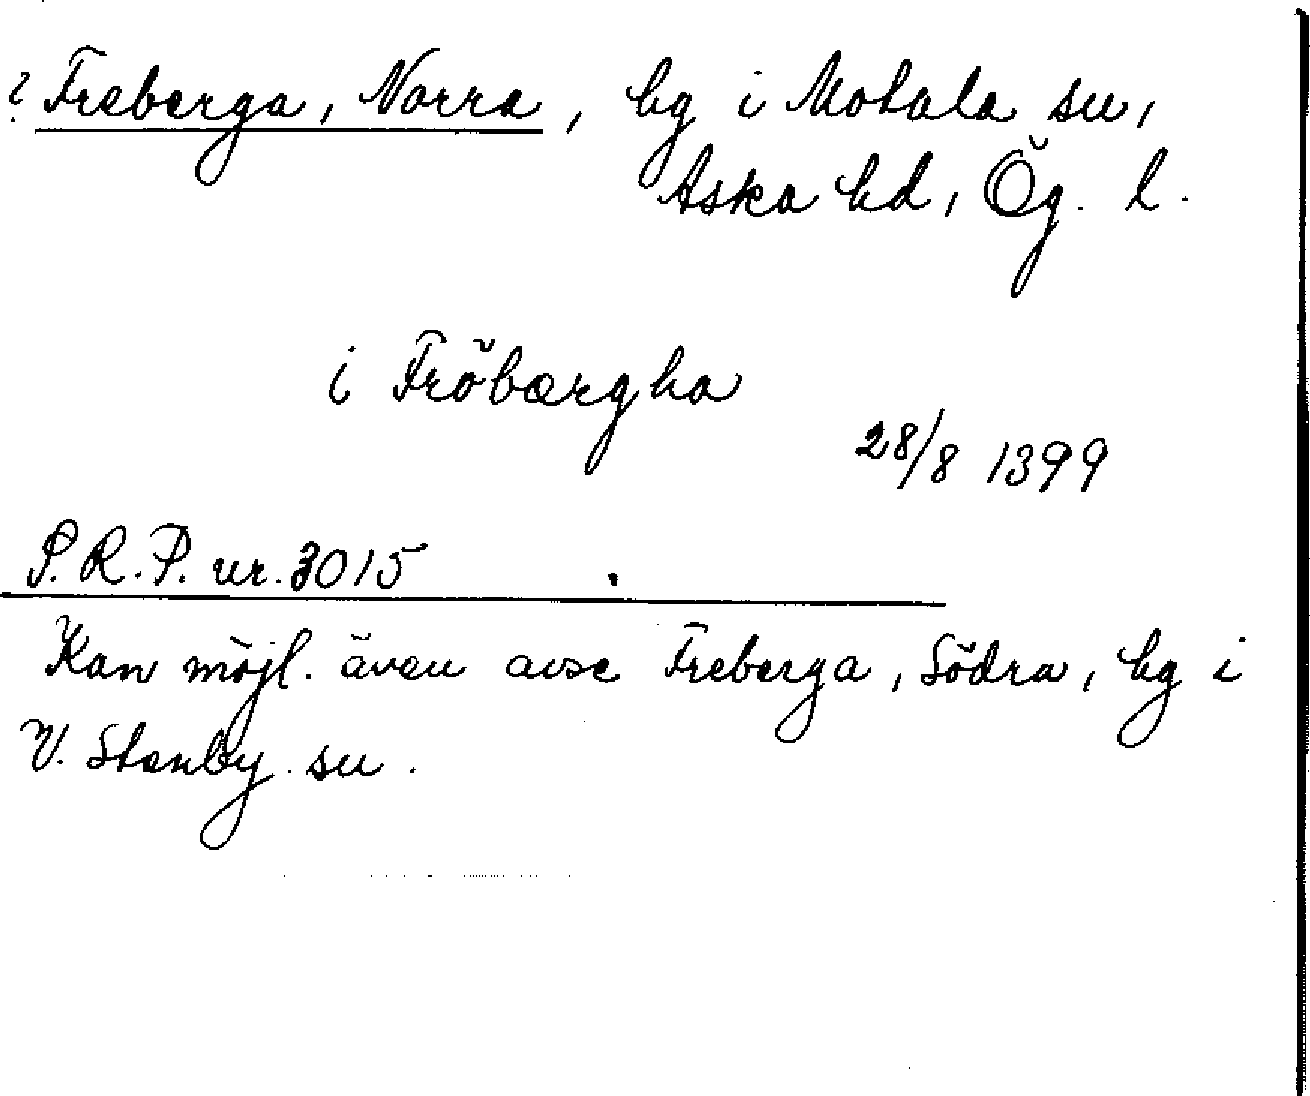 ? Freberga, Norra, by i Motala sn,
Aska hd, Ög. l.
i Fröbærgha
28/8 1399
P. R. P. nr. 3015
Kan möjl. även avse Freberga, Södra, by i
V. Stenby sn.